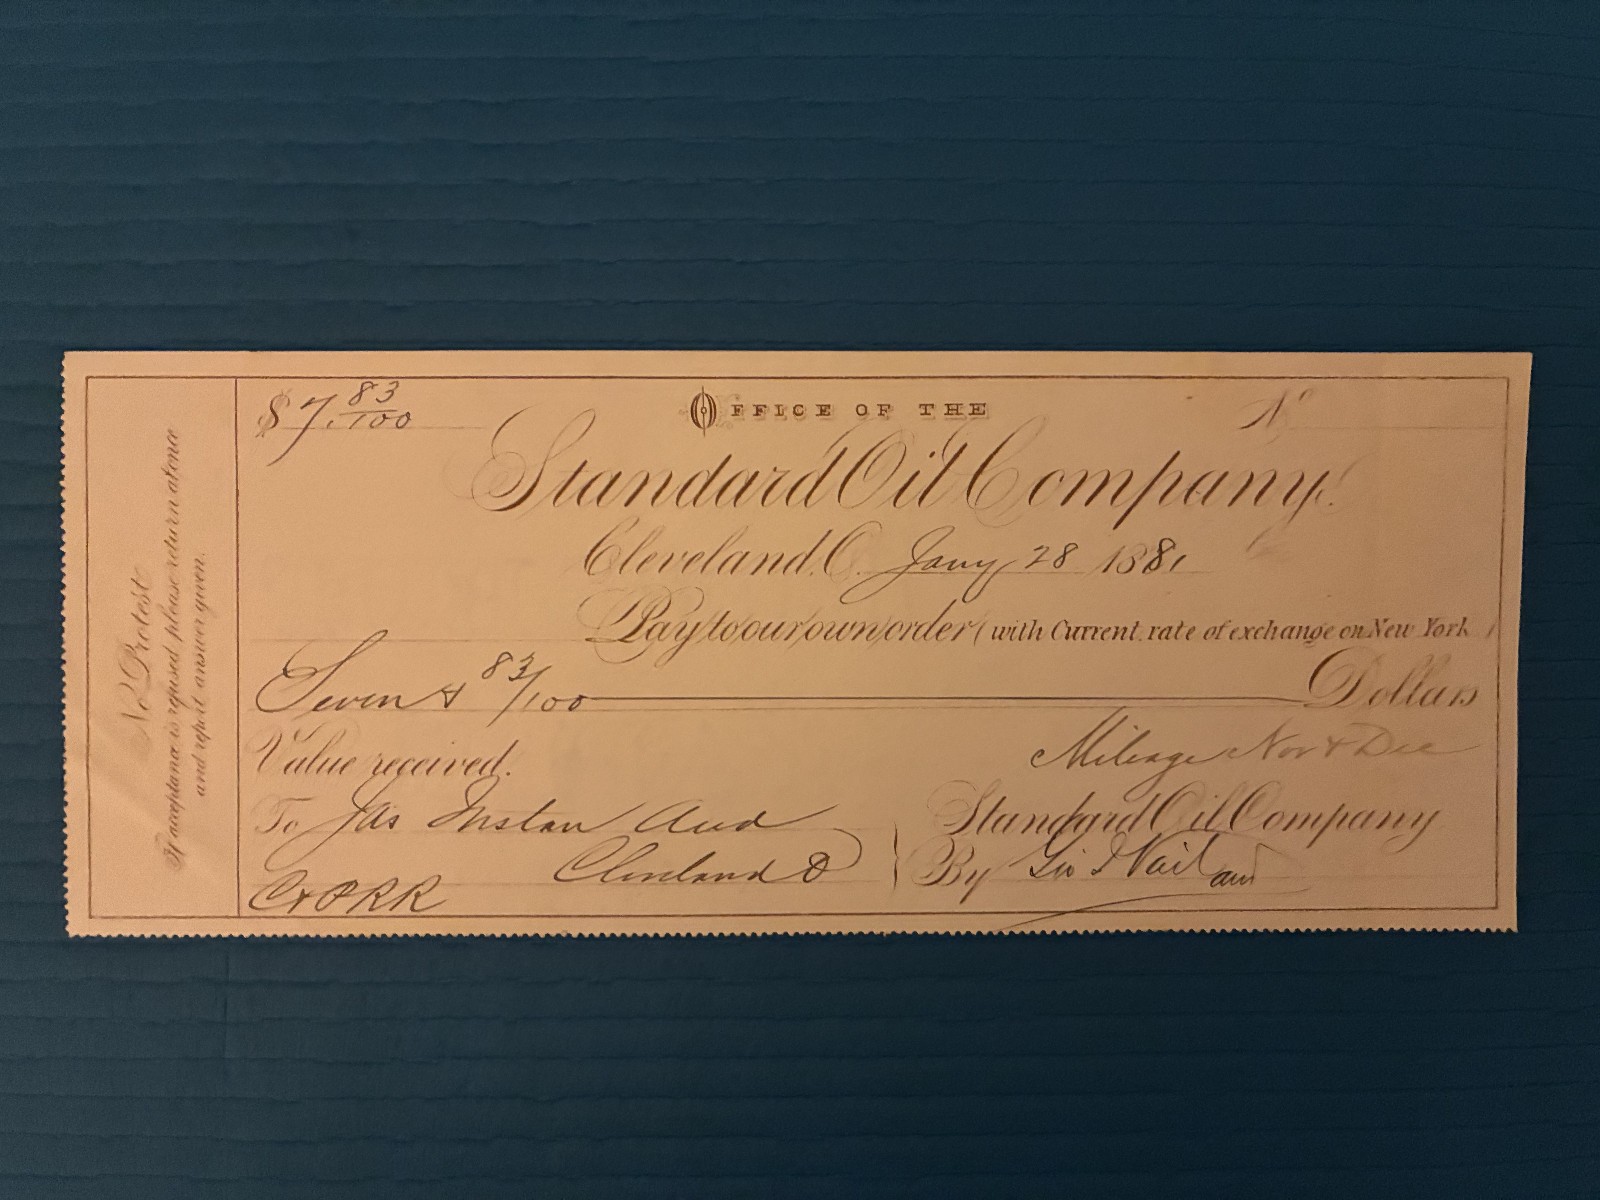 No Protest
If acceptance is refused please return at once
and report answer given.
$ 7. 83/100
OFFICE OF THE
No
Standard Oil Company.
Cleveland, O. Jany 28 1881
Pay to our own order (with Current rate of exchange on New York)
Seven & 83/100 Dollars
Value received.
Mileage Nov & Dec
To Jas Aud
Cleveland O
C & P RR
Standard Oil Company
By Geo